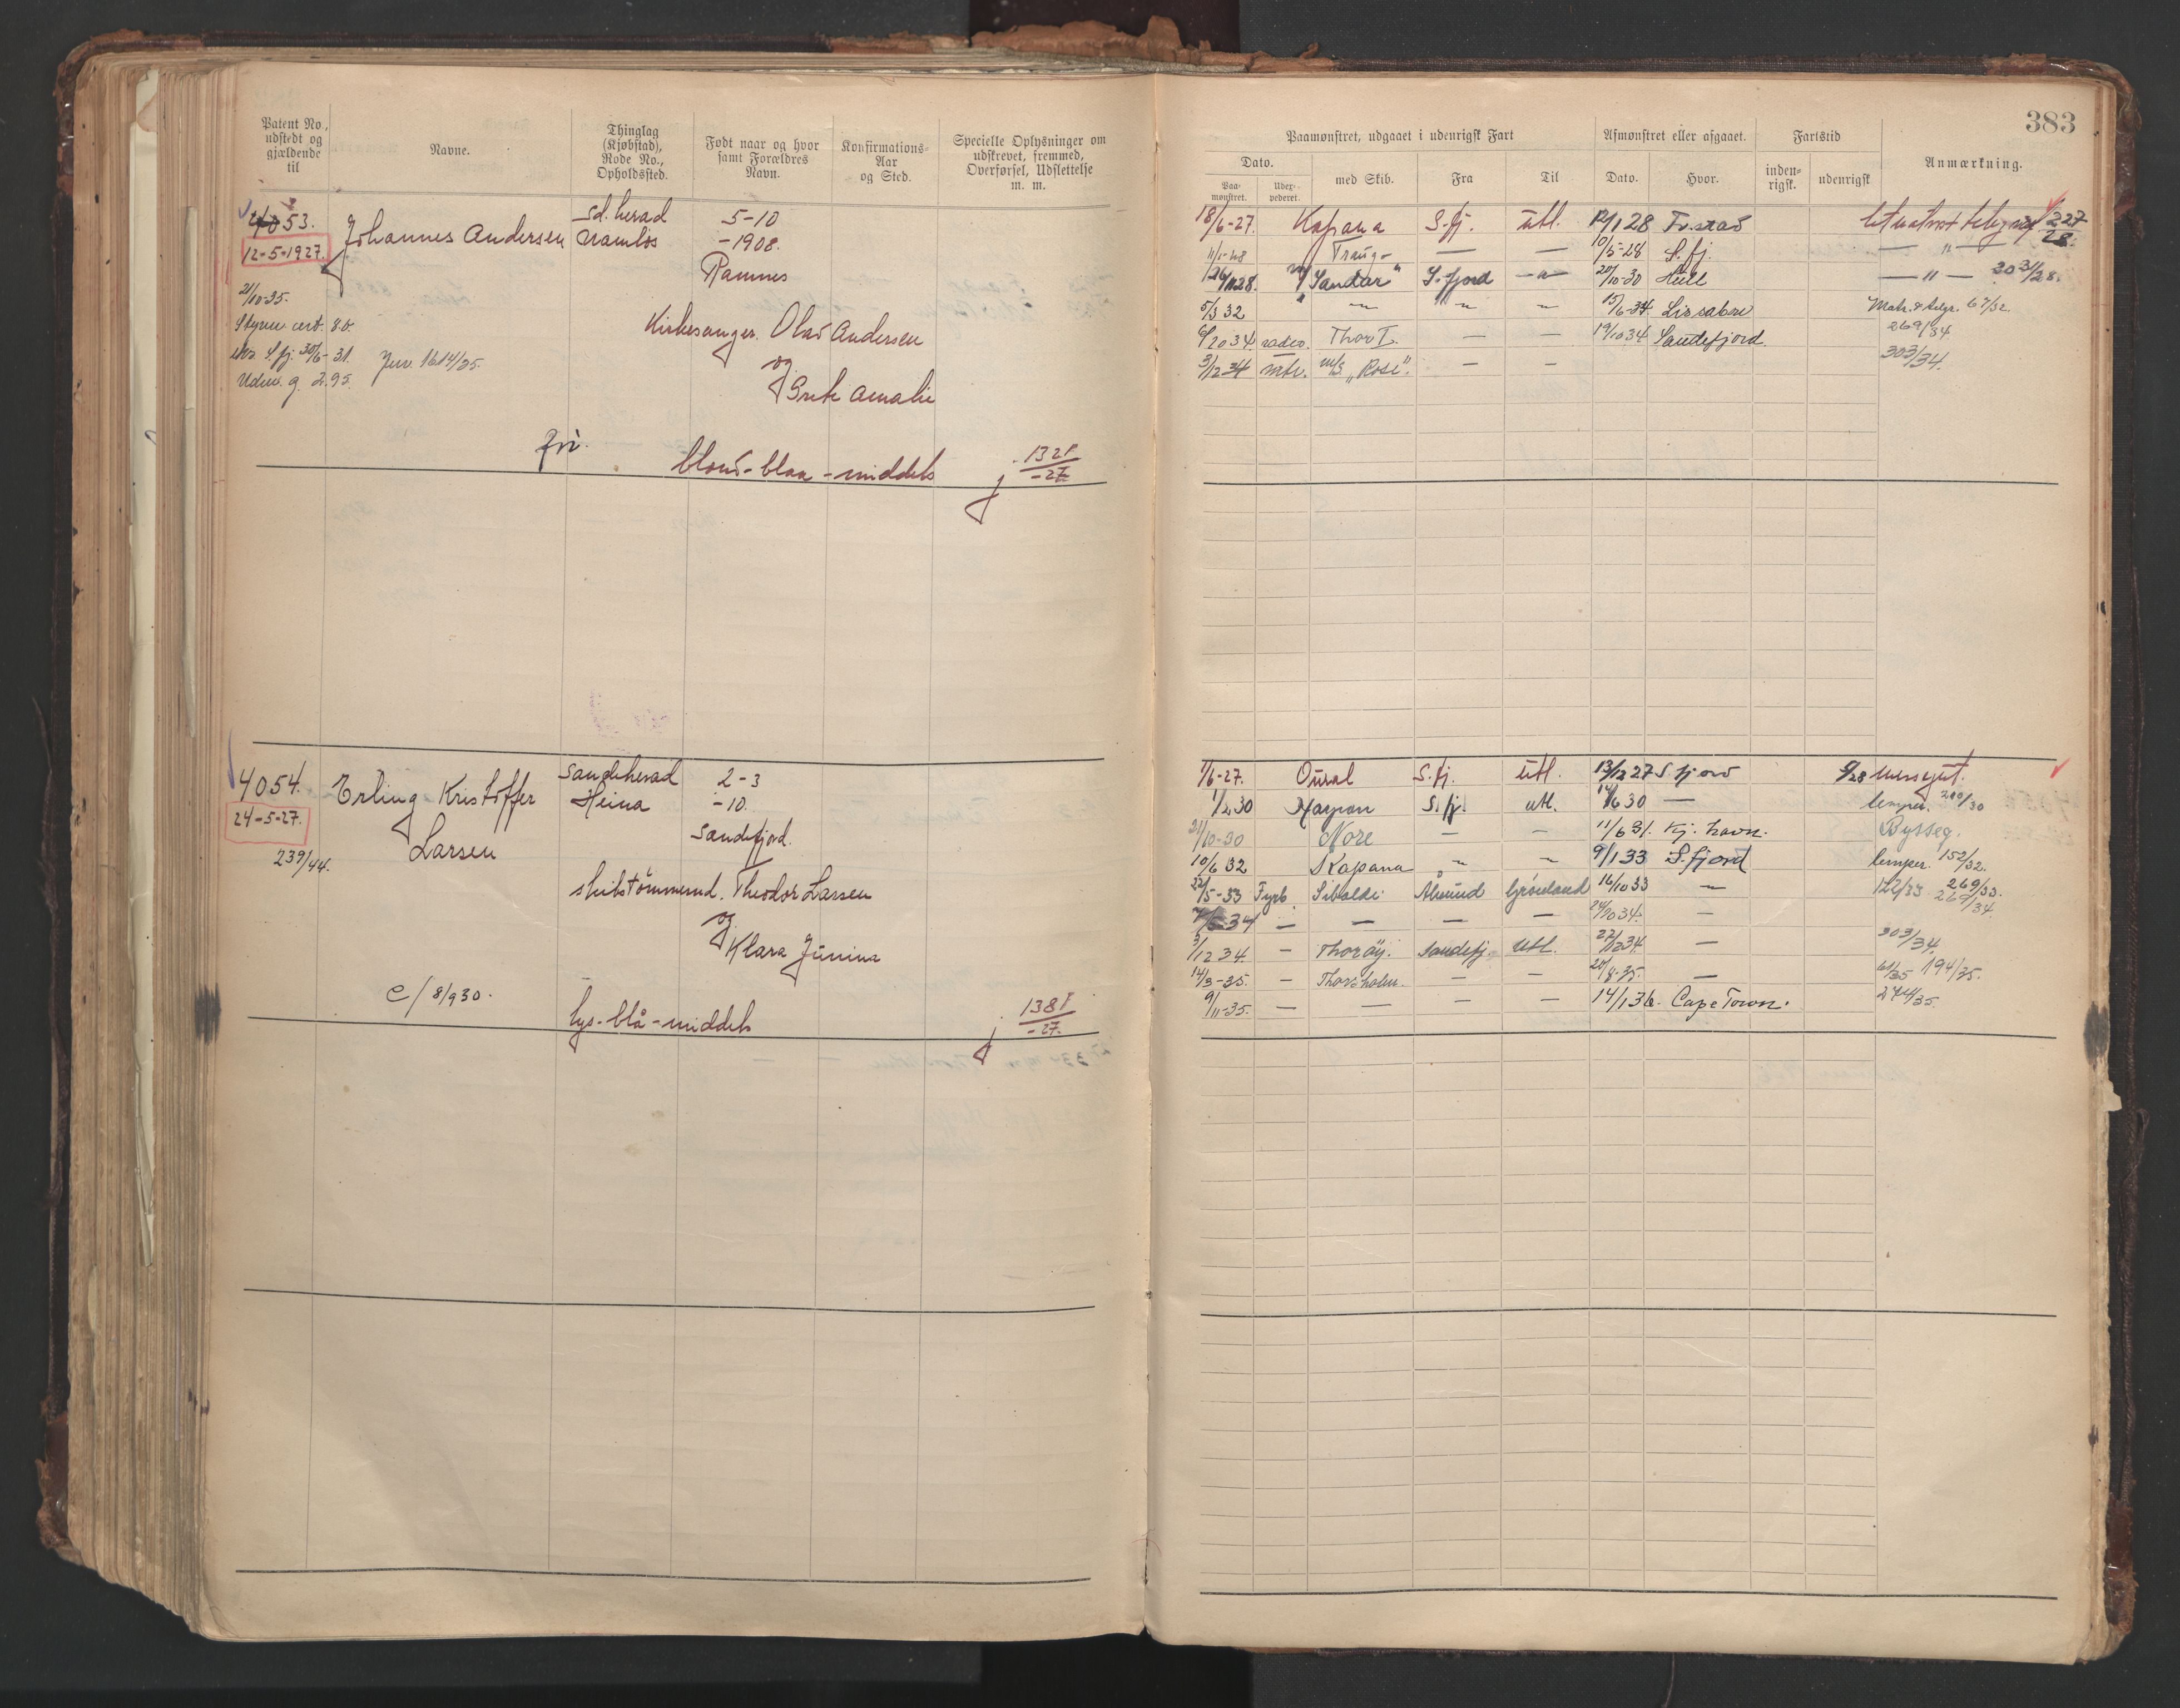 383
Patent No., udstedt og gjældende til
Navne.
Thinglag (Kjøbstad), Rode No., Opholdssted.
Født naar og hvor samt Forældres Navn.
Konfirmations-Aar og Sted.
Specielle Oplysninger om udskrevet, fremmed, Overførsel, Udslettelse m. m.
Paamønstret, udgaaet i udenrigsk Fart
Afmønstret eller afgaaet.
Fartstid
Anmærkning.
Dato.
Paa-mønstret.
Udex-pederet.
med Skib.
Fra
Til
Dato.
Hvor.
inden-rigsk.
udenrigsk
4053.
12-5-1927.
Johannes Andersen
Sd. herad
5-10
-1908.
Ramnes
21/10-35.
Styrm. cert. 80.
S. fj. 30/6-31.
g. 2.95.
Jnr. 1614/35.
Kirkesanger. Olav Andersen
og
Grete Amalie
fri.
blond-blaa-middels
j 1321/-27
18/6-27. Kapana S.fj. utl. 12/1 28 Fr.stad 227/28.
11/1-28 Traug — — 10/5-28 S.fj. — " —
26/11 28. "Sandar" S.fjord — " — 20/10-30 Hull — " — 203/28.
5/3 32 " " " 15/6-34 Lissabon Matr. & telgr. 67/32.
6/2 034 Thor I. — — 19/10 34 Sandefjord. 269/34
3/12 34 mtr. m/s "Rose". — — 303/34.
4054.
24-5-27.
239/44.
Erling Kristoffer
Larsen
Sandeherad
Heina
2-3
-10.
Sandefjord.
skibstømmermd. Theodor Larsen
og
Klara Junina
e/ 8/930.
lys-blå-middels
j 1381/-27.
1/6-27. Oural S.fj. utl. 13/12 27 S.fjord messegut.
1/2 30 S.fj. utl. 14/6 30 — 200/30
21/10-30 Nore — — 11/6 31. Kj. havn. Bysseg.
10/6 32 Kapana " " 9/1 33 S.fjord lemper. 152/32.
22/5-33 Fyrb. Sibaldi Ålesund Grønland 16/10 33 — 122/33 269/33.
5-34 — — — — 034. — 269/34.
3/12 34. — Thorøy. Sandefj. Utl. 22/12 34. — 303/34,
14/3-35. — Thorsholm. — — 20/8-35. — 61/35 194/35.
9/11-35. — — — — 14/1 36. Cape Town. 244/35.